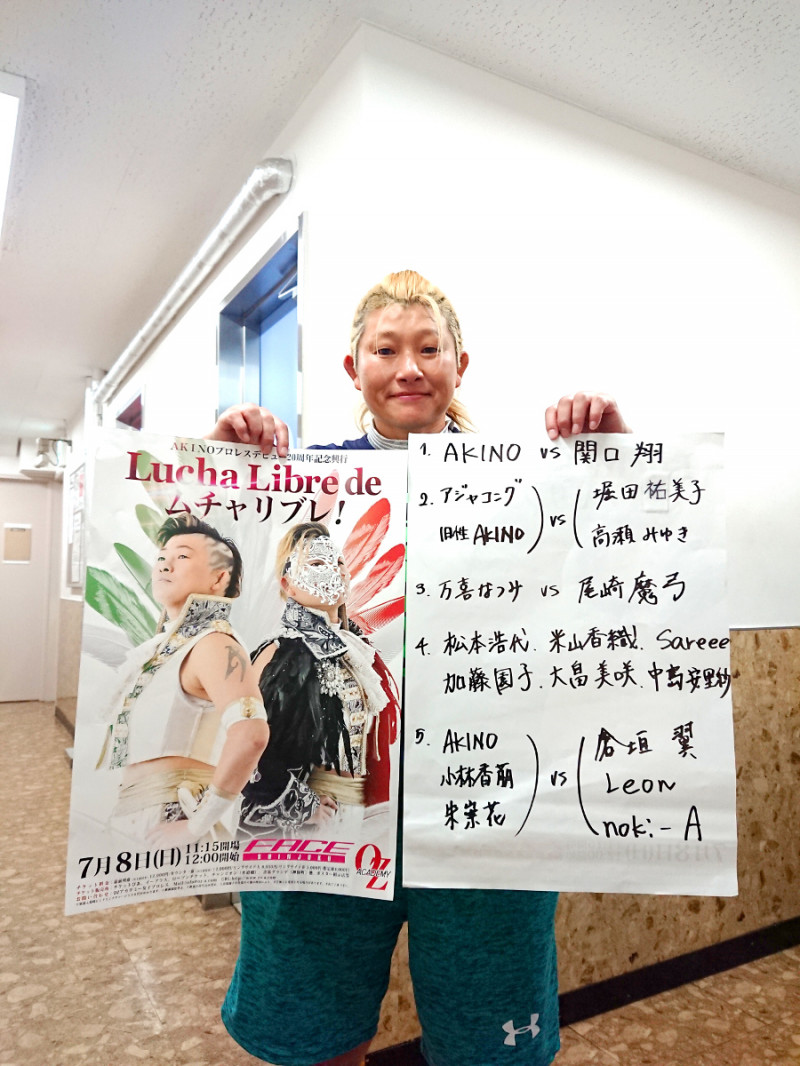 AKINOプロレスデビュー20周年記念興行
Lucha Libre de
ムチャリブレ!
7月8日(日) 11:15開場
12:00開始
FACE
SHINJUKU
OZ
ACADEMY
1. AKINO vs 関口翔
2. アジャコング
旧性AKINO
vs
堀田祐美子
高瀬みゆき
3. 万喜なつみ vs 尾崎魔弓
4. 松本浩代、米山香織、Sareee
加藤園子、大畠美咲、中島安里紗
5. AKINO
小林香萌
朱崇花
vs
倉垣翼
Leon
noki-A